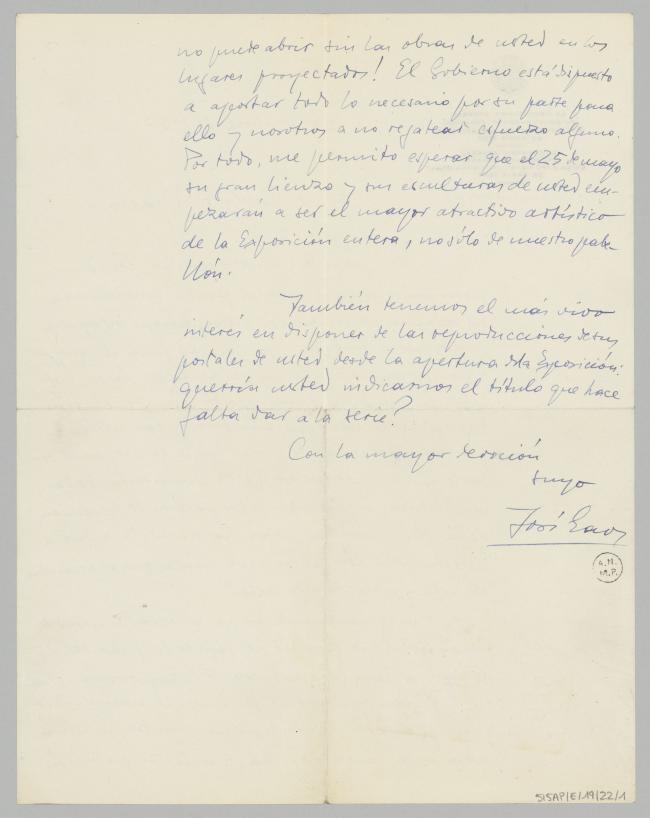 no puede abrir sin las obras de usted en los
lugares proyectados! El Gobierno está dispuesto
a aportar todo lo necesario por su parte para
ello y nosotros a no regatear esfuerzo alguno.
Por todo, me permito esperar que el 25 de mayo
su gran lienzo y sus esculturas de usted em-
pezarán a ser el mayor atractivo artístico
de la Exposición entera, no sólo de nuestro pabe-
llón.
También tenemos el más vivo
interés en disponer de las reproducciones de sus
postales de usted desde la apertura de la Exposición:
querrán usted indicarnos el título que hace
falta dar a la serie?
Con la mayor devoción
suyo
José Gaos
A.N.
M.P.
SISAP/E/19/22/1